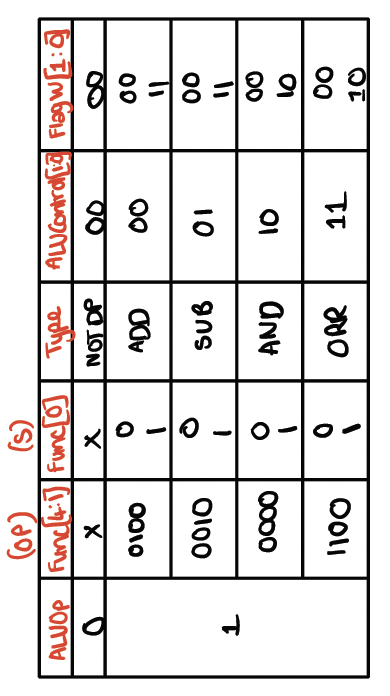 (OP) (S)
ALUOP Func[4:1] Func[0] Type ALUControl[1:0] FlagW[1:0]
0 X X NOT DP 00 00
1 0100 0 ADD 00 00
1 11
0010 0 SUB 01 00
1 11
0000 0 AND 10 00
1 10
1100 0 ORR 11 00
1 10